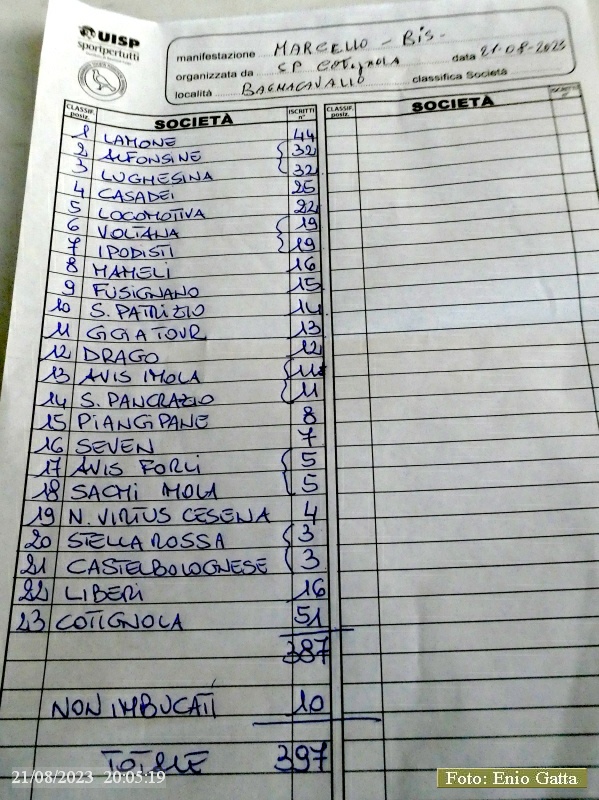 UISP
sportpertutti
manifestazione MARCELLO - BIS -
organizzata da SP COTIGNOLA data 21-08-2023
località BAGNACAVALLO classifica Società
CLASSIF. posiz. SOCIETÀ ISCRITTI n° CLASSIF. posiz. SOCIETÀ
1 LAMONE 44
2 ALFONSINE 32
3 LUGHESINA 32
4 CASADEI 25
5 LOCOMOTIVA 22
6 VOLTANA 19
7 IPODISTI 19
8 MAMELI 16
9 FUSIGNANO 15
10 S. PATRIZIO 14
11 GGIATOUR 13
12 DRAGO 12
13 AVIS IMOLA 11
14 S. PANCRAZIO 11
15 PIANGIPANE 8
16 SEVEN 7
17 AVIS FORLI 5
18 SACMI MOLA 5
19 N. VIRTUS CESENA 4
20 STELLA ROSSA 3
21 CASTELBOLOGNESE 3
22 LIBERI 16
23 COTIGNOLA 51
387
NON IMBUCATI 10
TOTALE 397
21/08/2023 20:05:19
Foto: Enio Gatta